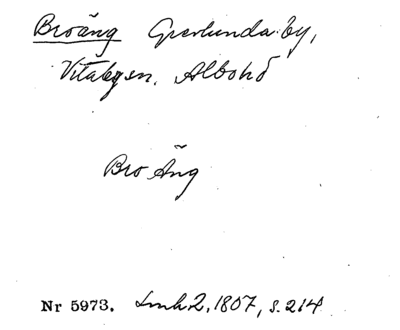 Broäng Gärlunda by,
Vitaby sn. Albo hd
Bro Äng
Nr 5973. Lmh 2, 1807, s. 214